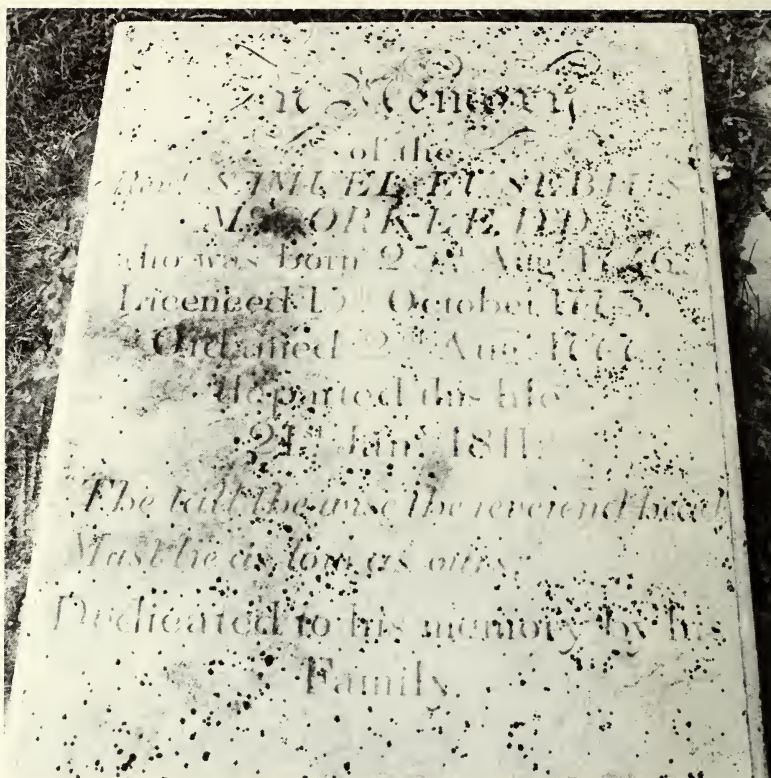 In Memory
of the
Revd. SAMUEL EUSEBIUS
McCORKLE DD
who was born 23d. Aug. 1746.
Licensed 15th October 1775.
Ordained 2d. Aug. 1777
Departed this life
21st. Jany. 1811.
The tall the wise the reverend head
Must lie as low as ours.
Dedicated to his memory by his
Family.